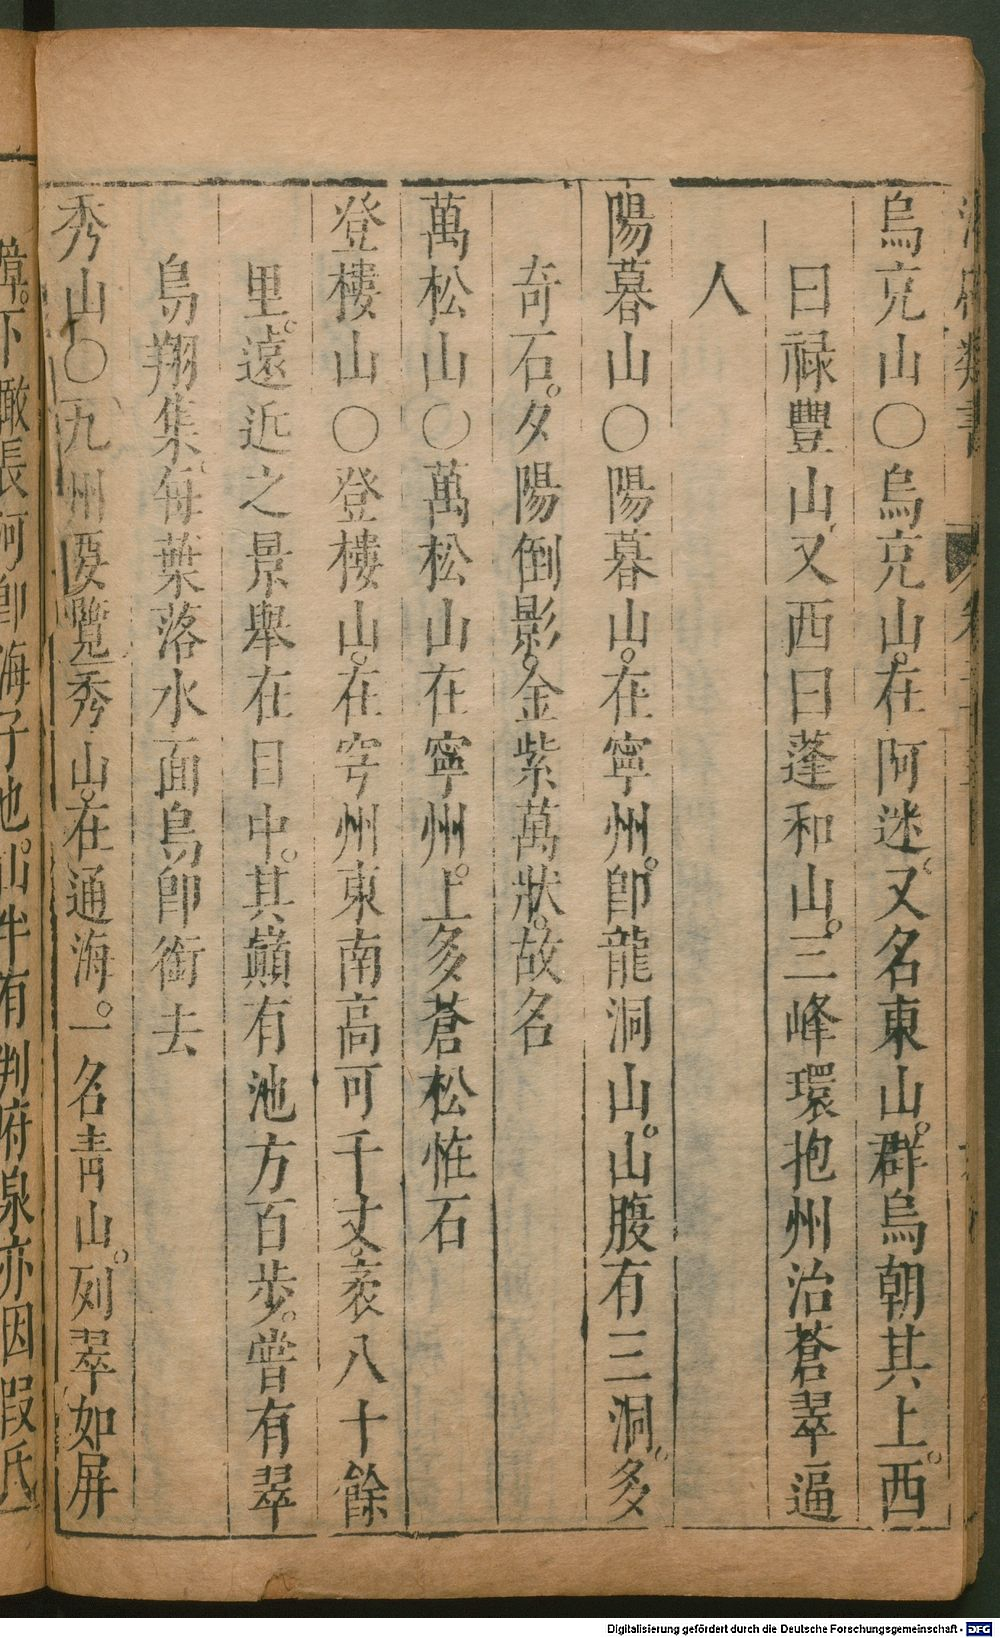 烏充山〇烏充山。在阿迷、又名東山。群烏朝其上。西
曰祿豐山、又西曰蓬和山。三峰環抱州治蒼翠逼
人
陽暮山〇陽暮山。在寧州。卽龍洞山。山腹有三洞。多
奇石。夕陽倒影。金紫萬狀。故名
萬松山〇萬松山在寧州。上多蒼松恠石
登樓山〇登樓山。在寧州東南高可千丈。袤八十餘
里。遠近之景舉在目中。其巔有池方百步。嘗有翠
鳥翔集。每葉落水面鳥卽銜去
秀山〇九州要覽秀山。在通海。一名青山。列翠如屏
障。下瞰長河卽海子也。山半有判府泉亦因段氏
Digitalisierung gefördert durch die Deutsche Forschungsgemeinschaft - DFG